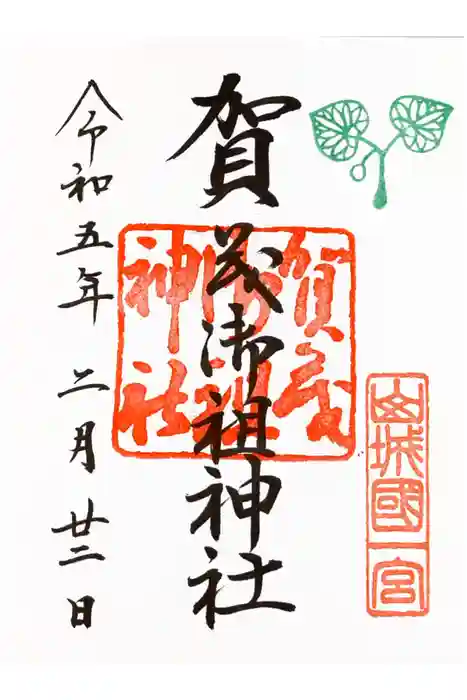 山城國一宮
賀茂御祖神社
賀茂御祖神社
令和五年 二月 廿二日